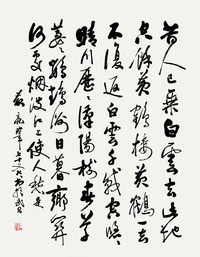 昔人已乘白雲去此地
空餘黃鶴樓黃鶴一去
不復返白雲千載空悠
晴川歷々漢陽樹春草
萋々鸚鵡洲日暮鄉關
何處烟波江上使人愁是